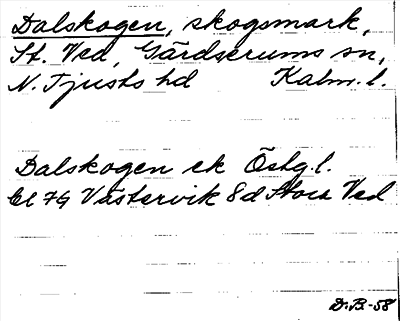 Dalskogen, skogsmark,
St. Ved, Gärdserums sn,
N. Tjusts hd Kalm. l.
Dalskogen ek Östg. l.
bl 7G Västervik 8d Stora Ved
D.B.-58